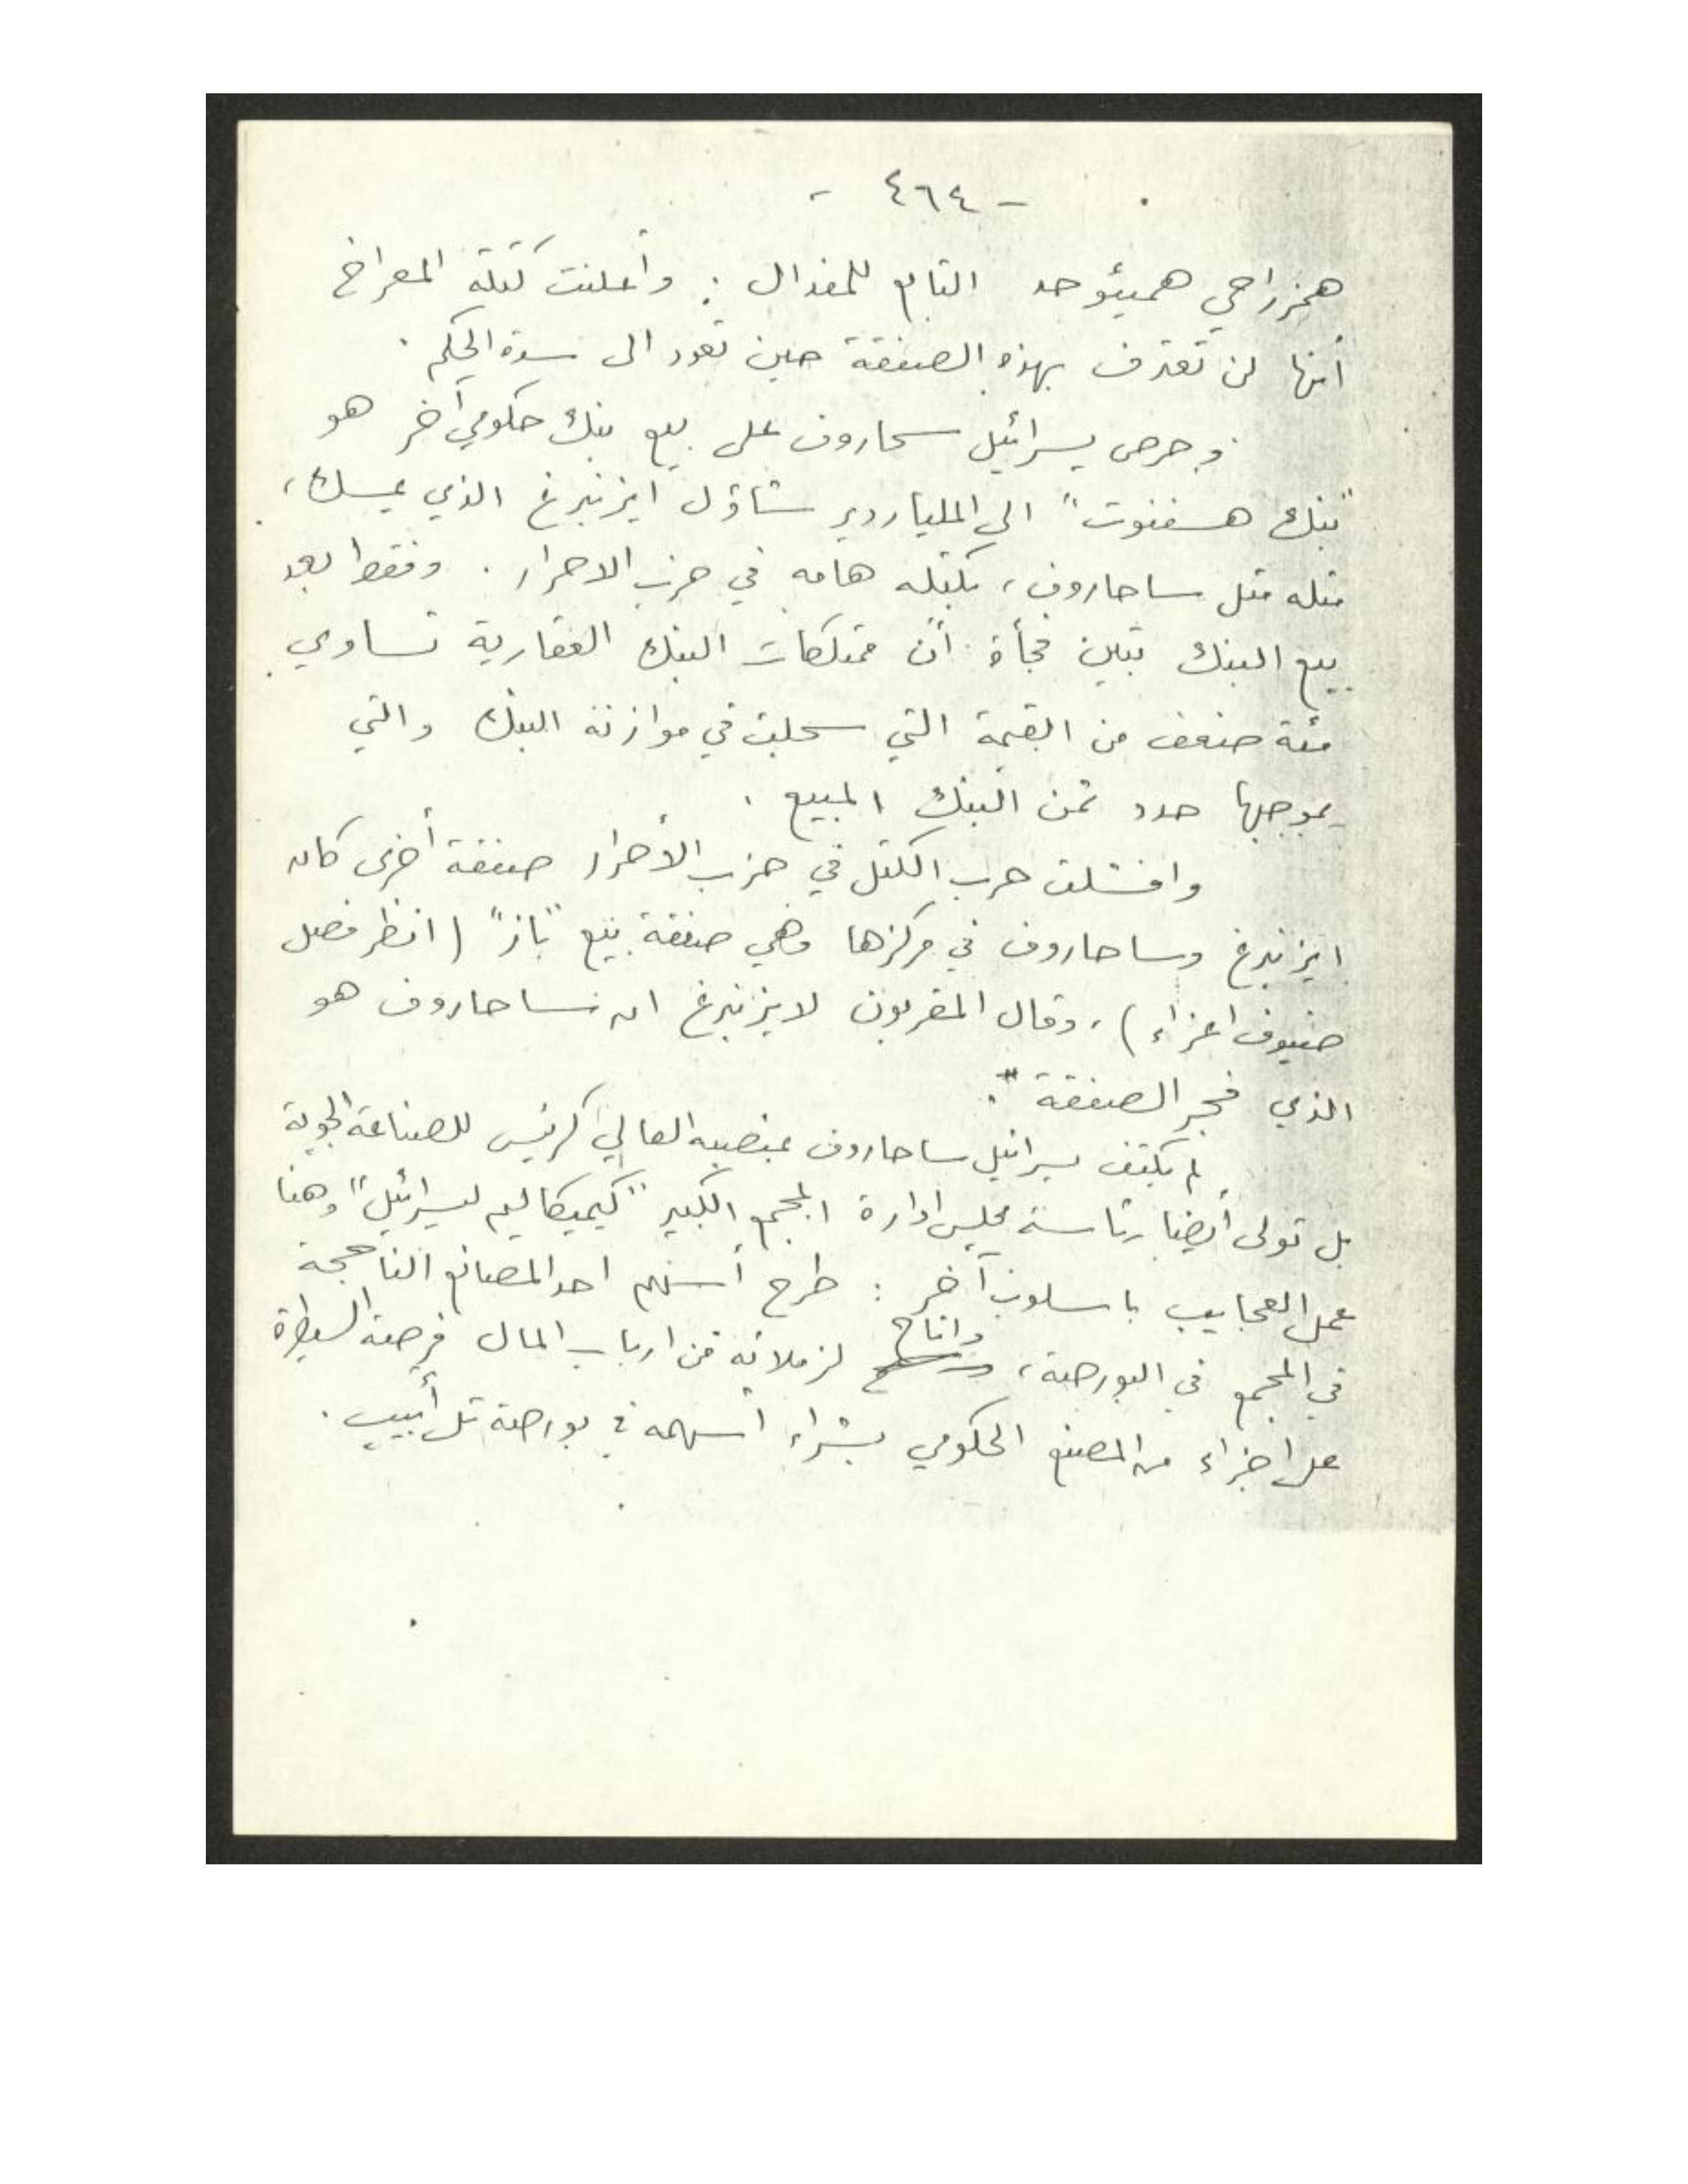 - ٤٦٤ -
همزراحي همیئوحد التابع للمفدال : وأعلنت كتلة المعراخ
أنها لن تعترف بهذه الصفقة حين تعود الى سدة الحكم .
وحرص يسرائيل سحاروف على بيع بنك حكومي آخر هو
"بنك هسفنوت" الى الملياردير شاؤل ايزنبرغ الذي يمسك ،
مثله مثل ساحاروف ، بكتله هامه في حزب الاحرار . وفقط بعد
بيع البنك تبين فجأة أن ممتلكات البنك العقارية تساوي
مئة ضعف من القيمة التي سجلت في موازنة البنك والتي
بموجبها حدد ثمن البنك المبيع .
وافشلت حرب الكتل في حزب الأحرار صفقة أخرى كان
ايزنبرغ وساحاروف في مركزها وهي صفقة بيع "باز" (انظر فصل
ضيوف اعزاء) ، وقال المقربون لايزنبرغ ان ساحاروف هو
الذي فجر الصفقة ".
لم يكتف يسرائيل ساحاروف بمنصبه العالي كرئيس للصناعة الجوية
بل تولى أيضا رئاسة مجلس ادارة المجمع الكبير "كيميكاليم ليسرائيل" وهنا
عمل العجايب باسلوب آخر : طرح أسهم احد المصانع الناجحة
في المجمع في البورصة ، واتاح لزملائه من ارباب المال فرصة السيطرة
على اجزاء من المصنع الحكومي بشراء اسهمه في بورصة تل أبيب .